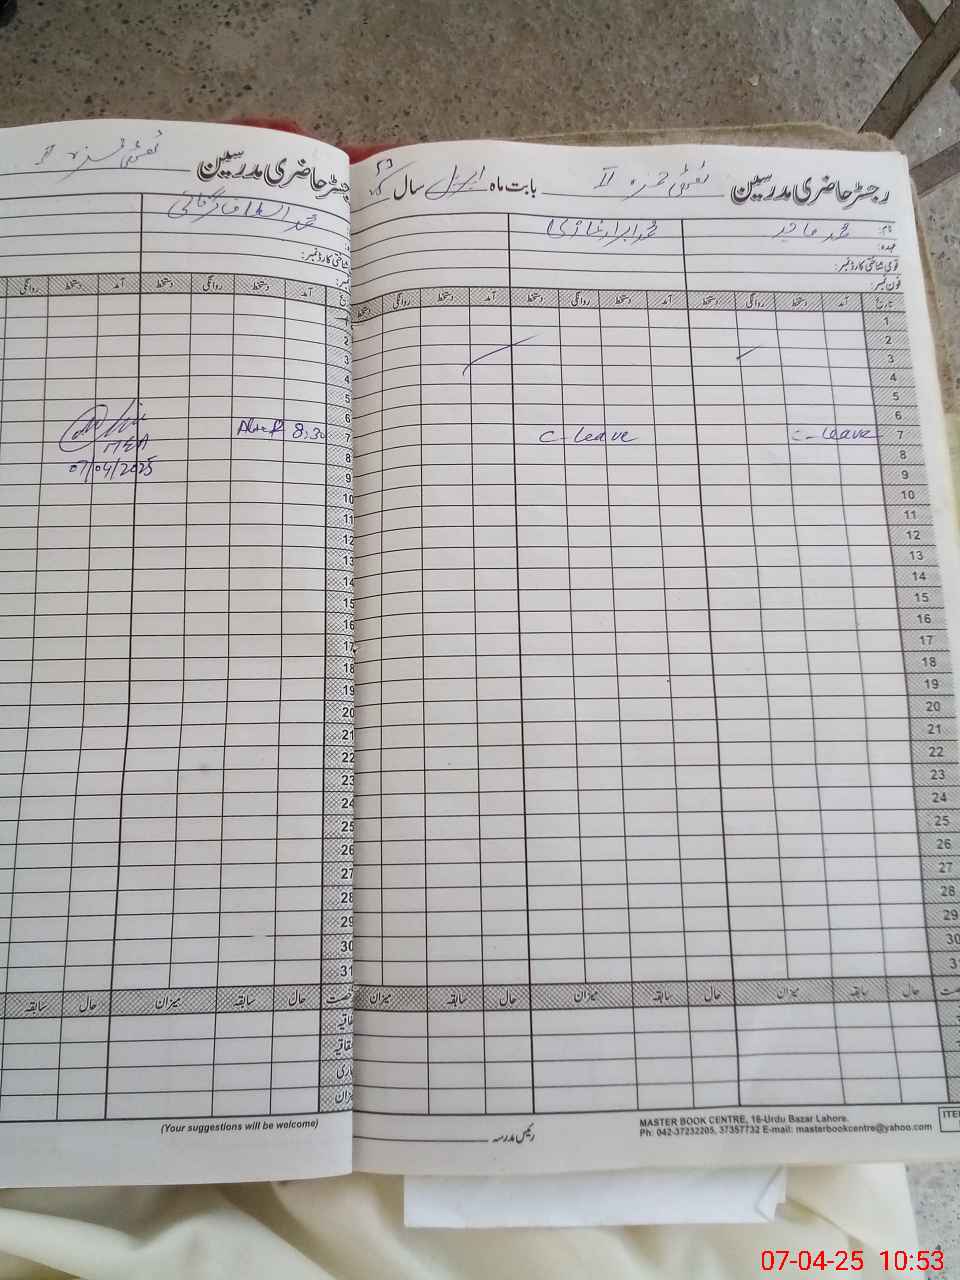 رجسٹر حاضری مدرسین II بابت ماہ اپریل سال
نام: محمد
عہدہ:
قومی شناختی کارڈ نمبر:
فون نمبر:
تاریخ آمد دستخط روانگی دستخط آمد دستخط روانگی دستخط آمد دستخط روانگی دستخط
1
2
3
4
5
6
7 C-Leave C-Leave
8
9
10
11
12
13
14
15
16
17
18
19
20
21
22
23
24
25
26
27
28
29
30
31
حال سابقہ میزان حال سابقہ میزان حال سابقہ میزان
رئیس مدرسہ
MASTER BOOK CENTRE, 16-Urdu Bazar Lahore.
Ph: 042-37232205, 37357732 E-mail: masterbookcentre@yahoo.com
ITE
رجسٹر حاضری مدرسین II
محمد
شناختی کارڈ نمبر:
آمد دستخط روانگی دستخط آمد دستخط روانگی
1
2
3
4
5
6
7 8:30
MEA
07/04/2025
8
9
10
11
12
13
14
15
16
17
18
19
20
21
22
23
24
25
26
27
28
29
30
31
حال سابقہ میزان حال سابقہ
(Your suggestions will be welcome)
07-04-25 10:53